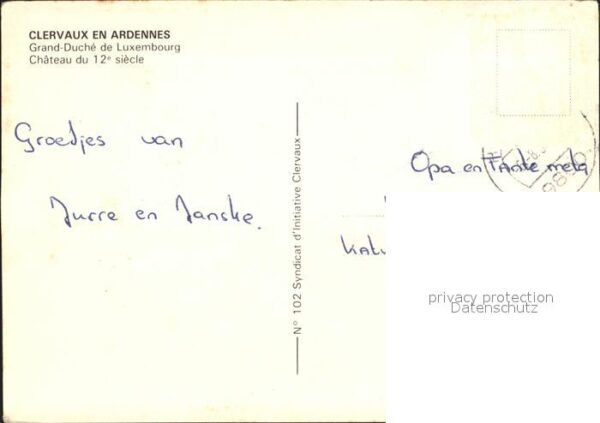 CLERVAUX EN ARDENNES
Grand-Duché de Luxembourg
Château du 12e siècle
Groetjes van
Jurre en Janske.
N° 102 Syndicat d'Initiative Clervaux
Opa en Tante meta
privacy protection
Datenschutz